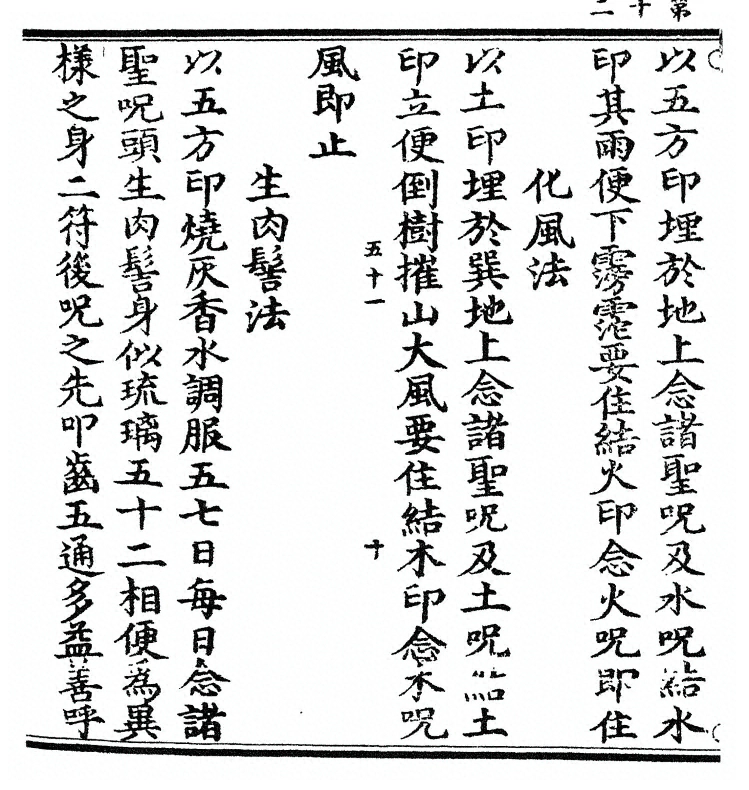 第十二
以五方印埋於地上念諸聖呪及水呪結水
印其雨便下霶霔要住結火印念火呪即住
化風法
以土印埋於巽地上念諸聖呪及土呪結土
印立便倒樹摧山大風要住結木印念木呪
五十一
十
風即止
生肉髻法
以五方印燒灰香水調服五七日每日念諸
聖呪頭生肉髻身似琉璃五十二相便為異
樣之身二符後呪之先叩齒五通多益善呼